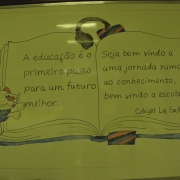 A educação é o
primeiro passo
para um futuro
melhor...
Seja bem vindo a
uma jornada rumo
ao conhecimento,
bem vindo a escola
Colégio La Salle